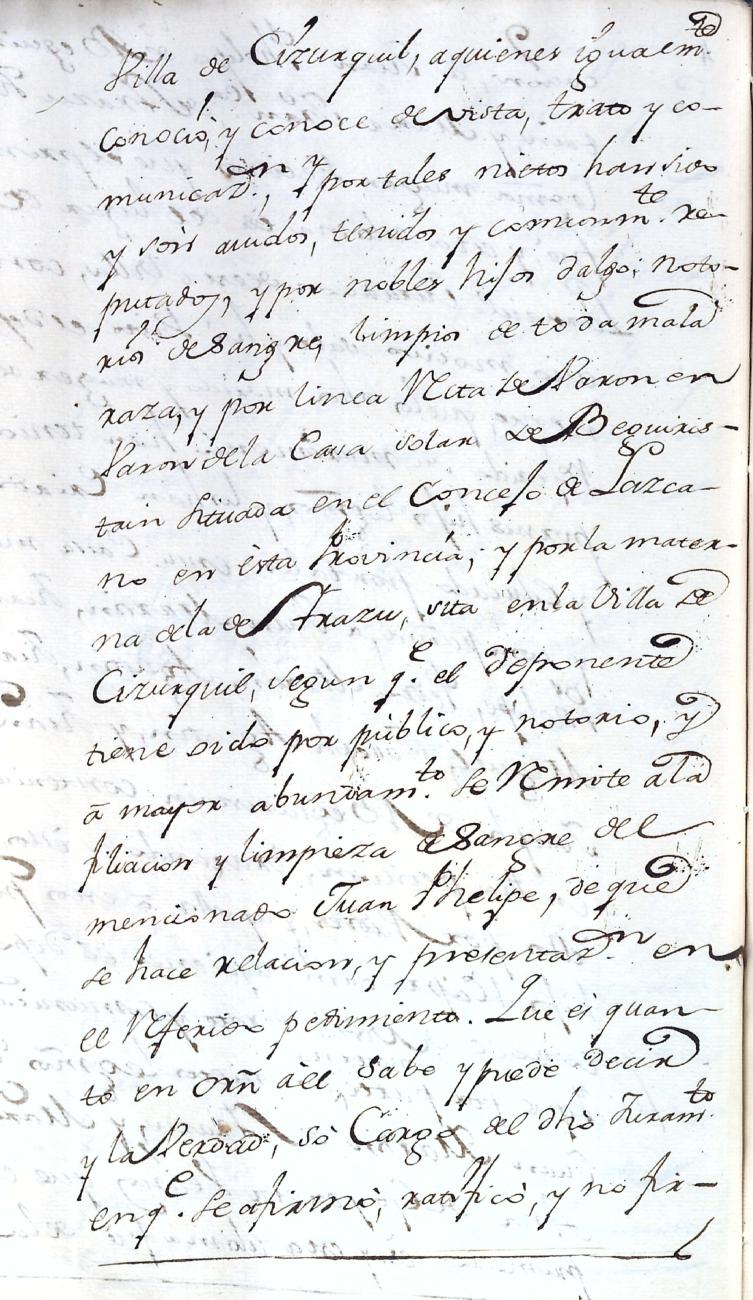 Villa de Cizurquil, a quienes igualm.te
conoció, y conoce de vista, trato y co-
municaz.n, y por tales nietos han sido
y son auidos, tenidos y comunm.te re-
putados, y por nobles hijos dalgo, noto-
rios de Sangre, limpios de toda mala
raza, y por linea Recta de Varon en
Varon de la Casa solar de Beguiris-
tain situada en el Concejo de Lazca-
no en esta Provincia, y por la mater-
na de la de Arazu, sita en la Villa de
Cizurquil, segun q.e el deponente
tiene oido por público, y notorio, y
à mayor abundam.to se Remite a la
filiacion y limpieza de Sangre del
mencionado Juan Phelipe, de que
se hace relacion, y presentaz.n en
el Referido pedimento. Que es quan-
to en orñ à él sabe y puede decir
y la Verdad, só Cargo del dho Juram.to
en q.e se afirmó, ratificó, y no fir-